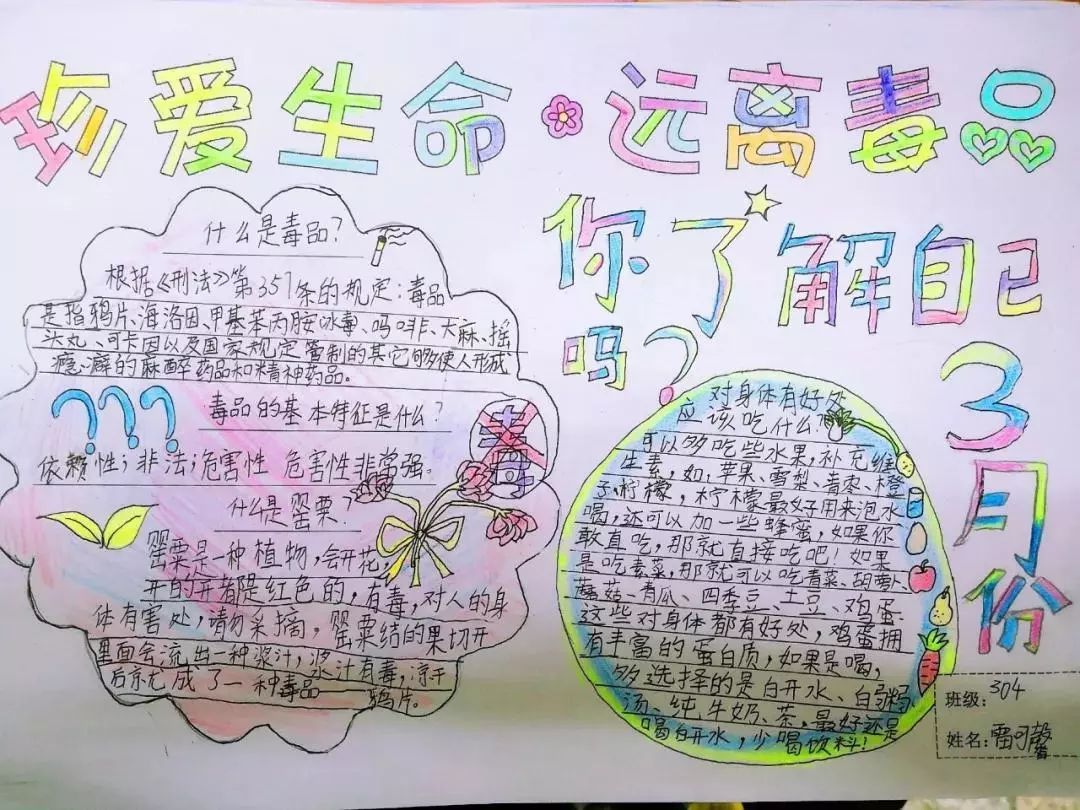 珍爱生命·远离毒品
你了解自己
吗?
3月份
什么是毒品?
根据《刑法》第357条的规定:毒品
是指鸦片、海洛因、甲基苯丙胺冰毒、吗啡、大麻、摇
头丸、可卡因以及国家规定管制的其它够使人形成
瘾癖的麻醉药品和精神药品。
???
毒品的基本特征是什么?
依赖性;非法;危害性 危害性非常强。
毒品
什么是罂粟?
罂粟是一种植物,会开花,
开的开都是红色的,有毒,对人的身
体有害处,请勿采摘,罂粟结的果切开
里面会流出一种浆汁,浆汁有毒,凉干
后就成了一种毒品
鸦片。
对身体有好处
应该吃什么
可以多吃些水果,补充维
生素,如,苹果、雪梨、青枣、橙
子、柠檬,柠檬最好用来泡水
喝,还可以加一些蜂蜜,如果你
敢直吃,那就直接吃吧!如果
是吃素菜,那就可以吃青菜、胡萝卜
蘑菇、青瓜、四季豆、土豆、鸡蛋
这些对身体都有好处,鸡蛋拥
有丰富的蛋白质,如果是喝,
多选择的是白开水、白粥
汤、纯牛奶、茶,最好还是
喝白开水,少喝饮料!
班级:304
姓名:雷可